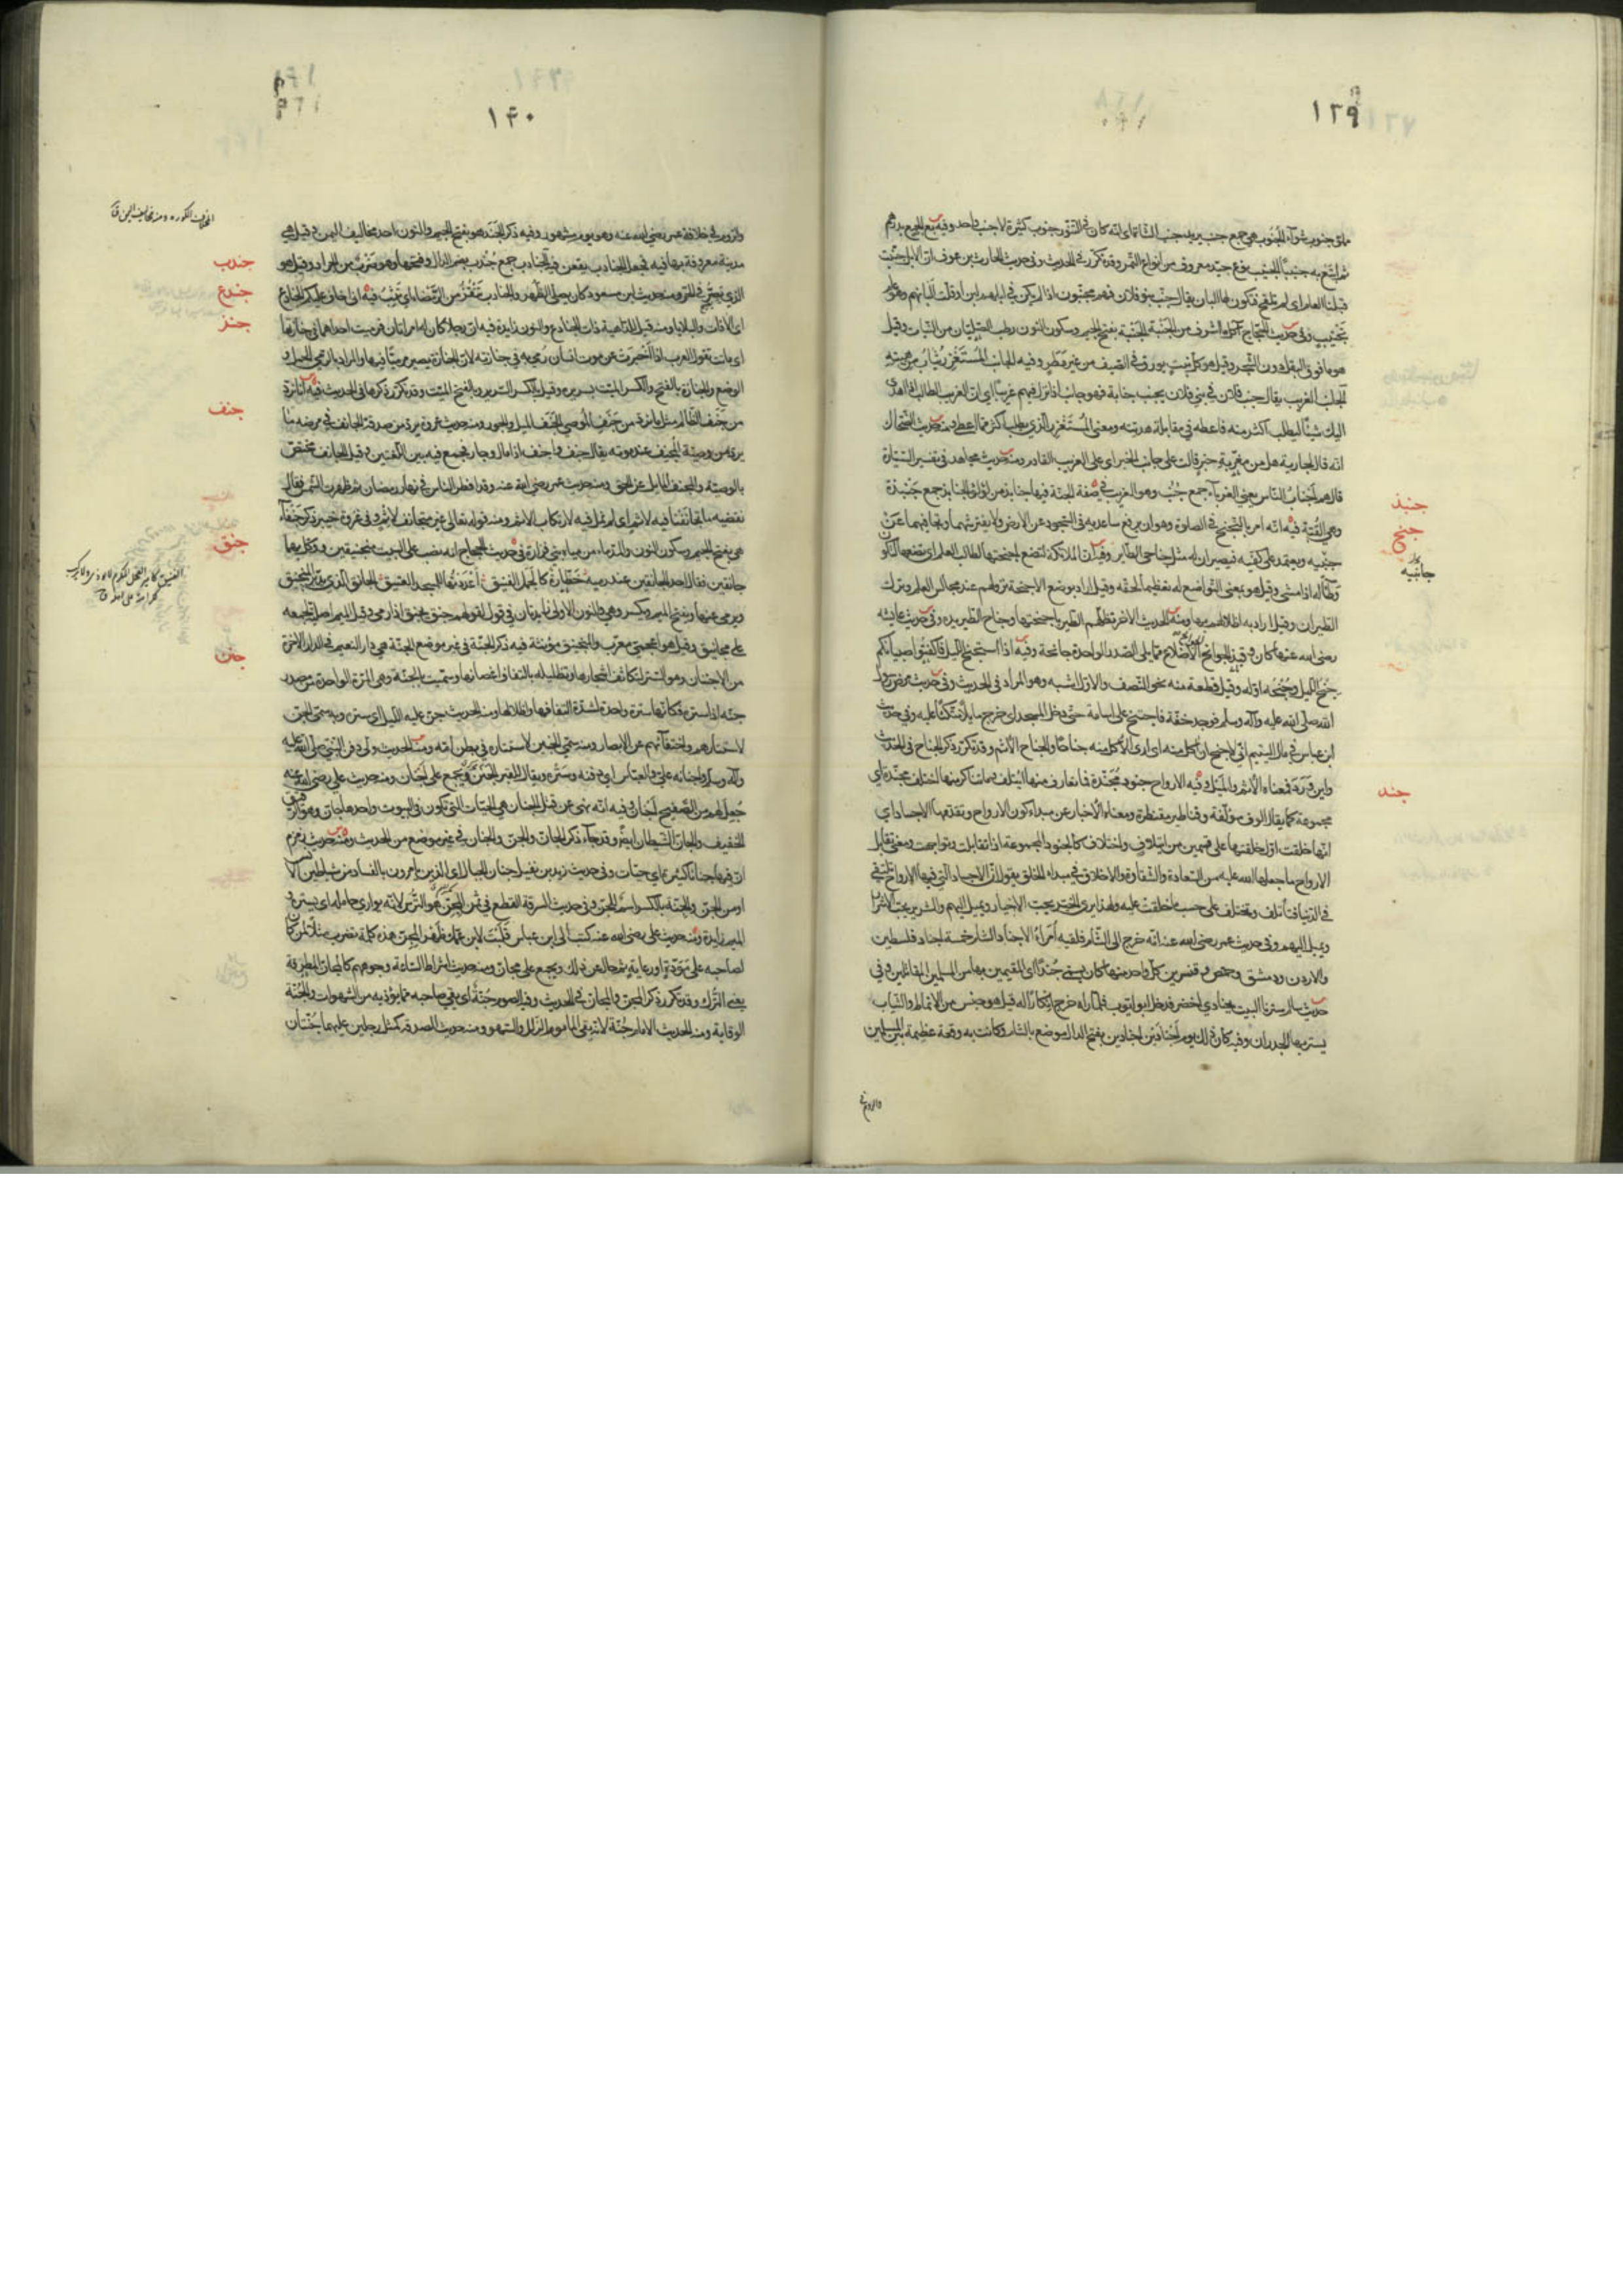 ١٣٩
ملئ جنوب شواء الجنوب هي جمع جنب يريد جنب الشاة اى انه كان فى التنور جنوب كثيرة لا جنب واحد وفيه بع الجمع بدرهم
ثم ابتع به جنيبا الجنيب نوع جيد معروف من انواع التمر وقد تكرر فى الحديث وفى حديث الحارث بن عوف ان الابل جنبت
قبلنا العام اى لم تلقح فيكون لها البان يقال جنب بنو فلان فهم مجنبون اذا لم يكن فى ابلهم لبن او قلت البانهم وهو عام
تجنيب وفى حديث الحجاج آكل ما اشرف من الجنبة الجنبة بفتح الجيم وسكون النون رطب الصليان من النبات وقيل
هو ما فوق البقل ودون الشجر وقيل هو كل نبت يورق فى الصيف من غير مطر وفيه الجانب المستغزر يثاب من هبته
الجانب الغريب يقال جنب فلان فى بنى فلان يجنب جنابة فهو جانب اذا نزل فيهم غريبا اى ان الغريب الطالب اذا اهدى
اليك شيئا ليطلب اكثر منه فاعطه فى مقابلة هديته ومعنى المستغزر الذى يطلب اكثر مما اعطى ومنه حديث الضحاك
انه قال لجارية هل من مغربة خبر قالت على جانب الخبر اى على الغريب القادم ومنه حديث مجاهد فى تفسير السيارة
قال هم اجناب الناس يعنى الغرباء جمع جنب وهو الغريب فى صفة الجنة فيها جنابذ من لؤلؤ الجنابذ جمع جنبذة
وهى القبة فيه انه امر بالتجنح فى الصلوة وهو ان يرفع ساعديه فى السجود عن الارض ولا يفترشهما ويجافيهما عن
جنبيه ويعتمد على كفيه فيصيران له مثل جناحى الطاير وفيه ان الملائكة لتضع اجنحتها لطالب العلم اى تضعها لتكون
وطاء له اذا مشى وقيل هو بمعنى التواضع له تعظيما لحقه وقيل اراد بوضع الاجنحة نزولهم عند مجالس العلم وترك
الطيران وقيل اراد به اظلالهم بها ومنه الحديث الآخر تظلهم الطير باجنحتها وجناح الطير يده وفى حديث عايشة
رضى الله عنها كان وقيذ الجوانح الاضلاع مما يلى الصدر الواحدة جانحة وفيه اذا استجنح الليل فاكفتوا صبيانكم
جنح الليل وجنحه اوله وقيل قطعة منه نحو النصف والاول اشبه وهو المراد فى الحديث وفى حديث مرض رسول
الله صلى الله عليه وآله وسلم فوجد خفة فاجتنح على اسامة حتى دخل المسجد اى خرج مايلا متكئا عليه وفى حديث
ابن عباس فى مال اليتيم انى لاجنح ان آكل منه اى ارى الاكل منه جناحا والجناح الاثم وقد تكرر ذكر الجناح فى الحديث
واين ورد فمعناه الاثم والميل وفيه الارواح جنود مجندة فما تعارف منها ائتلف وما تناكر منها اختلف مجندة اى
مجموعة كما يقال الوف مؤلفة وقناطير مقنطرة ومعناه الاخبار عن مبداء كون الارواح وتقدمها الاجساد اى
انها خلقت اول خلقتها على قسمين من ايتلاف واختلاف كالجنود المجموعة اذا تقابلت وتواجهت ومعنى تقابل
الارواح ما جعلها الله عليه من السعادة والشقاوة والاخلاق فى مبداء الخلق يقول ان الاجساد التى فيها الارواح تلتقى
فى الدنيا فتأتلف وتختلف على حسب ما خلقت عليه ولهذا يرى الخير يحب الاخيار ويميل اليهم والشرير يحب الاشرار
ويميل اليهم وفى حديث عمر رضى الله عنه انه خرج الى الشام فلقيه امراء الاجناد الشام خمسة اجناد فلسطين
والاردن ودمشق وحمص وقنسرين كل واحد منها كان يسمى جندا اى المقيمين بها من المسلمين المقاتلين وفى
حديث سالم سترنا البيت بجنادى اخضر فدخل ابو ايوب فلما راه خرج انكارا له قيل هو جنس من الانماط والثياب
يستر بها الجدران وفيه كان ذلك يوم اجنادين اجنادين بفتح الدال موضع بالشام وكانت به وقعة عظيمة بين المسلمين
جنبذ
جنح
جانبيه
جند
والروم فى
١٤٠
والروم فى خلافة عمر رضى الله عنه وهو يوم مشهور وفيه ذكر الجند هو بفتح الجيم والنون احد مخاليف اليمن وقيل هى
مدينة معروفة بها فيه فجعل الجنادب يقعن فيه الجنادب جمع جندب بضم الدال وفتحها وهو ضرب من الجراد وقيل هو
الذى يصر فى الحر ومنه حديث ابن مسعود كان يصلى الظهر والجنادب تنقز من الرمضاء اى تثب فيه انى اخاف عليكم الجنادع
اى الآفات والبلايا ومنه قيل للداهية ذات الجنادع والنون زايدة فيه ان رجلا كان له امراتان فرميت احداهما فى جنازتها
اى ماتت تقول العرب اذا اخبرت عن موت انسان رمى به فى جنازته لان الجنازة تصير مرميا فيها والمراد بالرمى الحمل و
الوضع والجنازة بالفتح والكسر الميت بسريره وقيل بالكسر السرير وبالفتح الميت وقد تكرر ذكرها فى الحديث فيه انا نرد
من جنف الظالم مثل ما نرد من جنف الموصى الجنف الميل والجور ومنه حديث عروة يرد من صدقة الجانف فى مرضه ما
يرد من وصية المجنف عند موته يقال جنف واجنف اذا مال وجار فجمع فيه بين اللغتين وقيل الجانف يختص
بالوصية والمجنف المايل عن الحق ومنه حديث عمر رضى الله عنه وقد افطر الناس فى نهار رمضان ثم ظهرت الشمس فقال
نقضيه ما تجانفنا فيه لاثم اى لم نمل فيه لارتكاب الاثم ومنه قوله تعالى غير متجانف لاثم وفى غزوة خيبر ذكر جنفاء
هى بفتح الجيم وسكون النون والمد ماء من مياه بنى فزارة فى حديث الحجاج انه نصب على البيت منجنيقين ووكل بهما
جانقين فقال احد الجانقين عند رميه خطارة كالجمل الفنيق اعددتها للمسجد العتيق الجانق الذى يدبر المنجنيق
ويرمى عنها وبفتح الميم وتكسر وهى والنون الاولى زايدتان فى قول لقولهم جنق يجنق اذا رمى وقيل الميم اصلية لجمعه
على مجانيق وقيل هو اعجمى معرب والمنجنيق مؤنثة فيه ذكر الجنة فى غير موضع الجنة هى دار النعيم فى الدار الآخرة
من الاجتنان وهو الستر لتكاثف اشجارها وتظليله بالتفاف اغصانها وسميت بالجنة وهى المرة الواحدة من مصدر
جنه اذا ستره فكانها سترة واحدة لشدة التفافها واظلالها ومنه الحديث جن عليه الليل اى ستره وبه سمى الجن
لاستتارهم واختفائهم عن الابصار ومنه سمى الجنين لاستتاره فى بطن امه ومنه الحديث ولى دفن النبى صلى الله عليه
وآله وسلم واجنانه على والعباس اى دفنه وستره ويقال للقبر الجنن ويجمع على اجنان ومنه حديث على رضى الله عنه
جعل لهم من الصفيح اجنان وفيه انه نهى عن قتل الجنان هى الحيات التى تكون فى البيوت واحدها جان وهو الدقيق
الخفيف والجان الشيطان ايضا وقد جاء ذكر الجان والجن والجنان فى غير موضع من الحديث ومنه حديث زمزم
ان فيها جنانا كثيرة اى حيات وفى حديث زيد بن نفيل جنان الجبال اى الذين يامرون بالفساد من شياطين الانس
او من الجن والجنة بالكسر اسم الجن وفى حديث السرقة القطع فى ثمن المجن هو الترس لانه يوارى حامله اى يستره و
الميم زايدة ومنه حديث على رضى الله عنه كتب الى ابن عباس قلبت لابن عمك ظهر المجن هذه كلمة تضرب مثلا لمن كان
لصاحبه على مودة او رعاية ثم حال عن ذلك ويجمع على مجان ومنه حديث اشراط الساعة وجوههم كالمجان المطرقة
يعنى الترك وقد تكرر ذكر المجن والمجان فى الحديث وفيه الصوم جنة اى يقى صاحبه مما يؤذيه من الشهوات والجنة
الوقاية ومنه الحديث الامام جنة لانه يقى الماموم الزلل والسهو ومنه حديث الصدقة كمثل رجلين عليهما جنتان
جندب
جندع
جنز
جنف
جنق
جنن